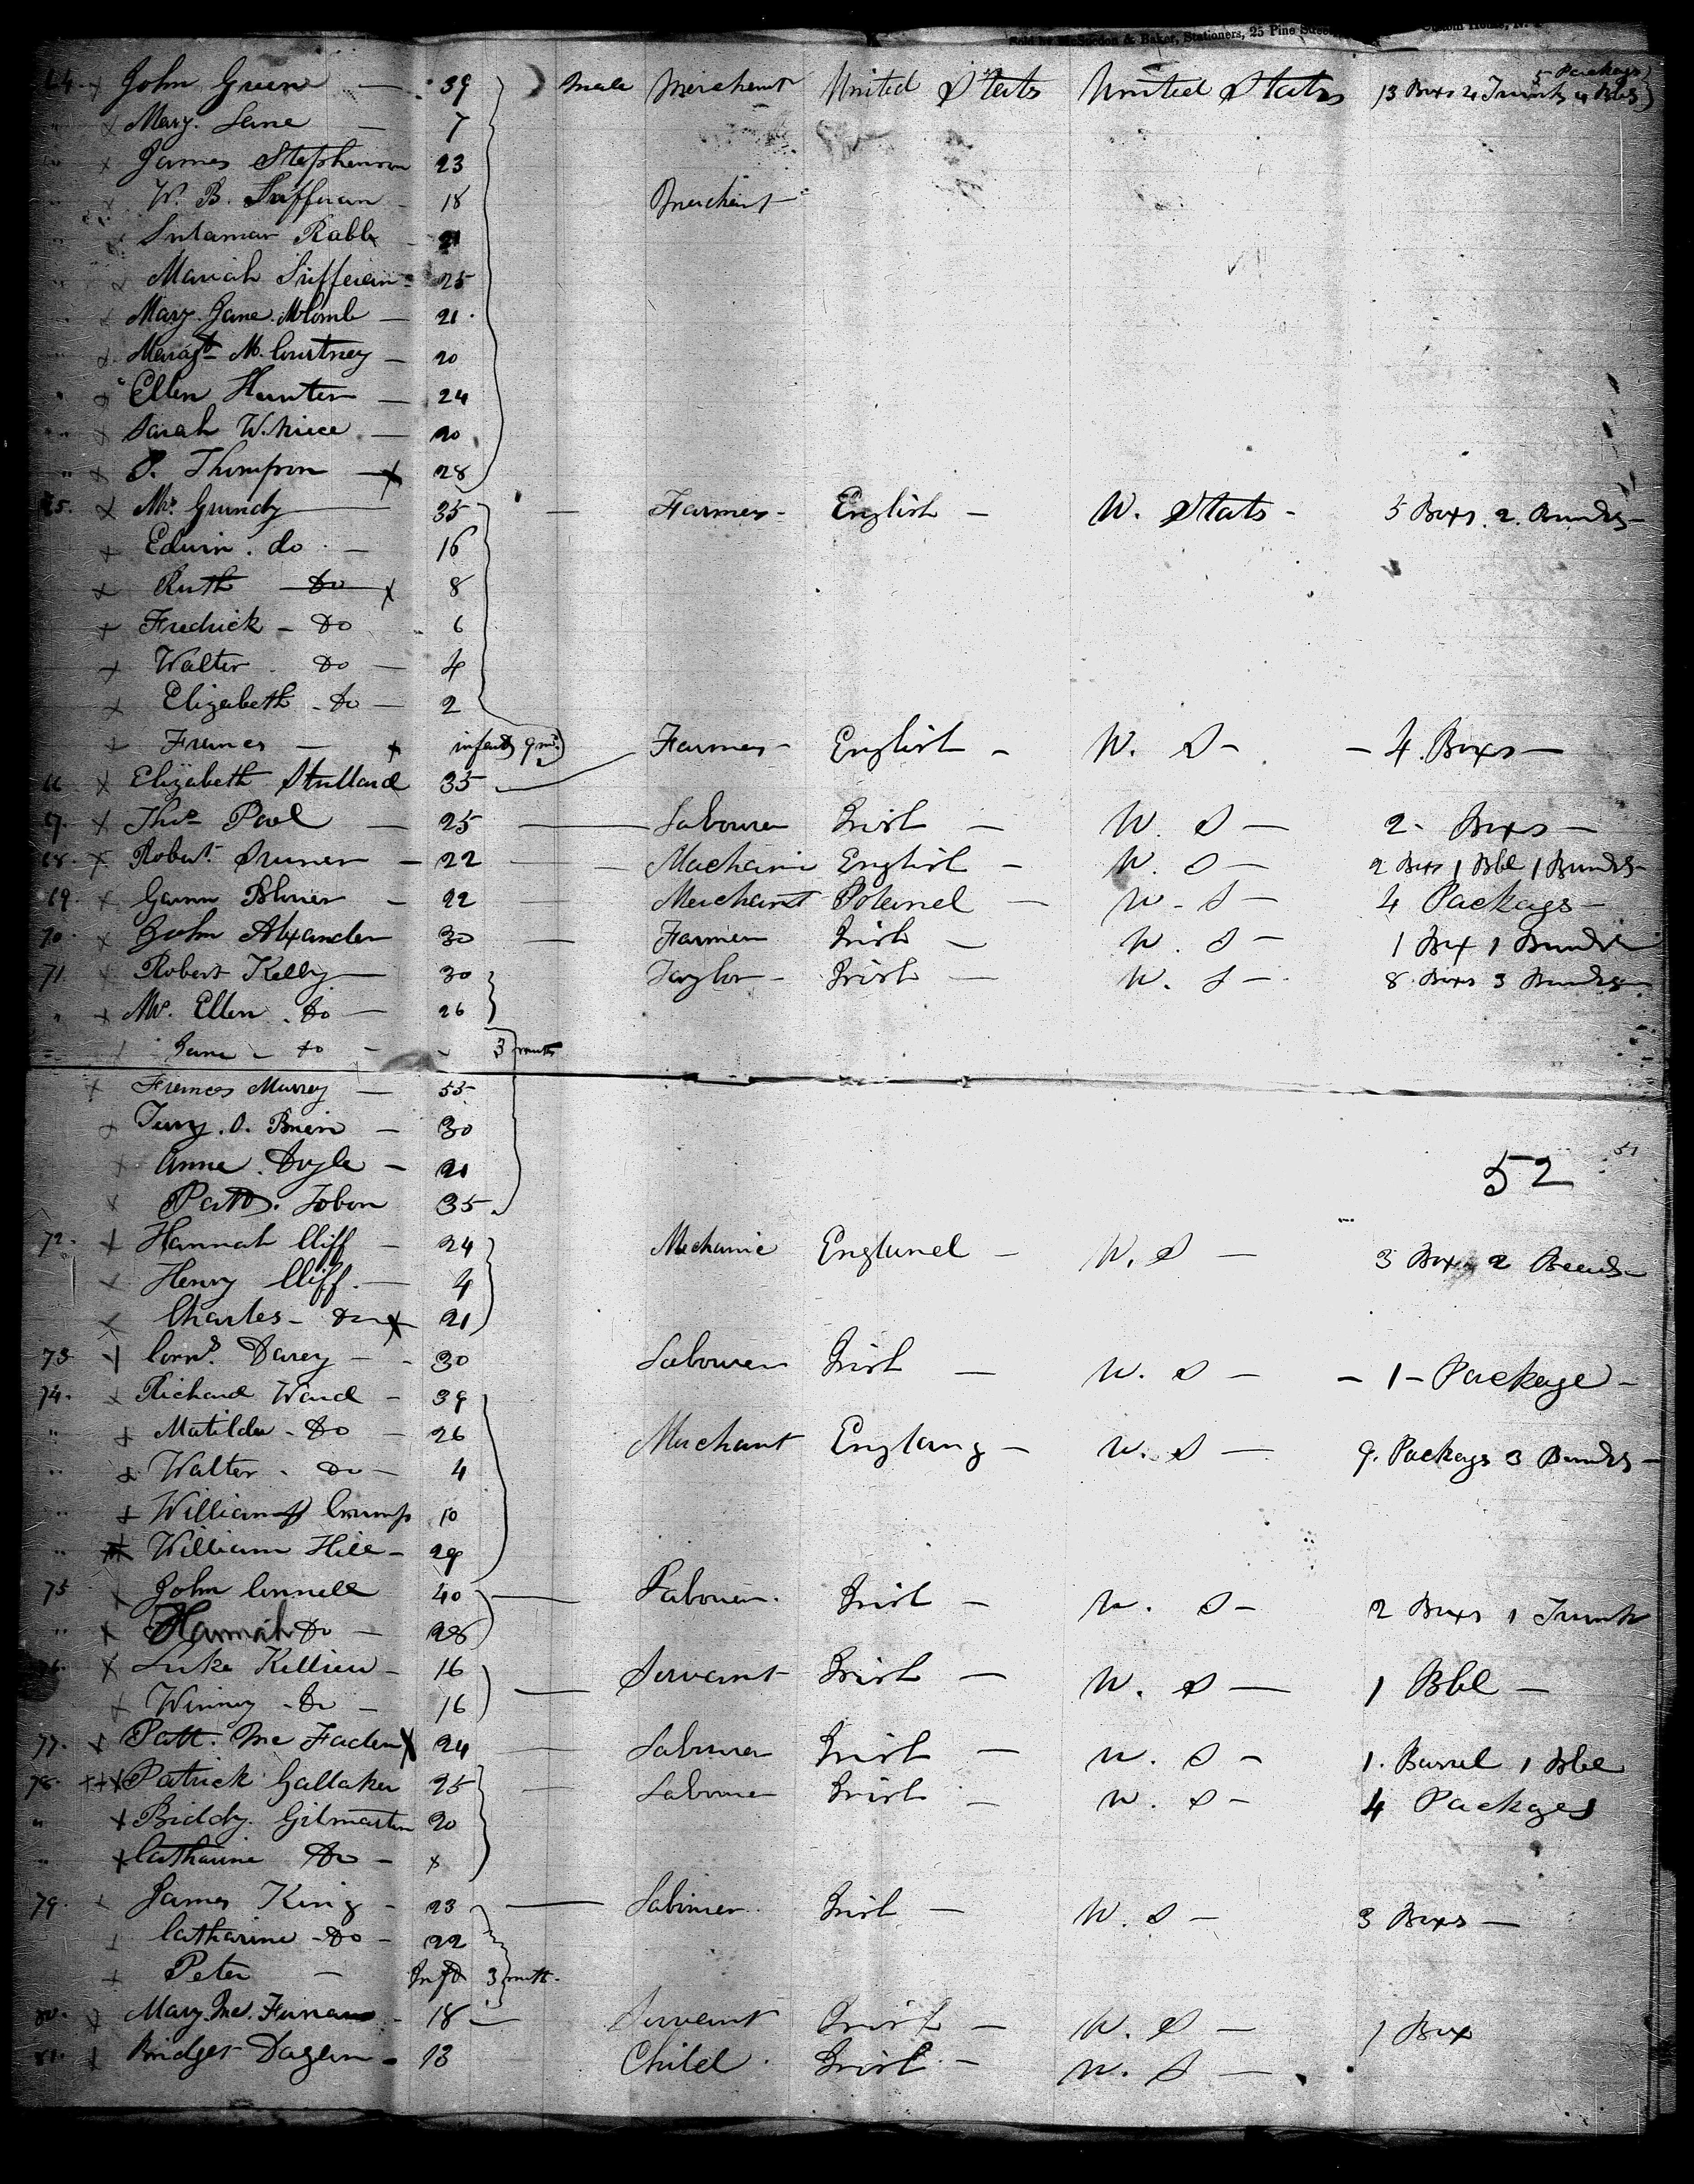 & Baker, Stationers, 25 Pine Street, Custom House, N. Y.
5 Packags
64. x John Green — 39 male Merchant United Stats United Stats 13 Boxs 4 Trunks 4 Bbls
" x Mary Jane — 7
" x James Stephenson 23
x W. B. 18 Merchant
" Rabb - 21
x Mariah 25
" x Mary Jane — 21
" x Margt M. Courtney — 20
" x Ellen Hunter — 24
" x Sarah — 20
" x P. Thompson — x 28
65. x Mrs Grundy 35 — Farmer - English — U. Stats - 5 Boxs. 2. Bundls —
x Edwin. do. — 16
x Ruth Do x 8
x Fredrick - Do 6
x Walter. Do — 4
x Elizabeth - Do — 2
x Frances — x infants 9 ms Farmer - English - U. S - - 4 Boxs —
66 x Elizabeth Stullard 35
67. x Thos Pool — 25 — Labourer Irish — U. S — 2 - Boxs —
68. x Robert - 22 — Machanic English - U. S — 2 Boxs 1 Bbl 1 Bundls
69. x - 22 — Merchant Poland — U - S — 4 Packags —
70. x John Alxander 30 — Farmer Irish — U. S — 1 Box 1 Bundle
71. x Robert Kelly — 30 Taylor - Irish — U. S — 8 Boxs 3 Bundls
" x Mrs. Ellen. Do — 26
Jane - do - 3 months
x Frances Murrey — 55
x Terry. O. Brien — 30
51
x Anne. Doyle — 21
52
x Patt. Tobin 35.
72. x Hannah Cliff — 24 Mechanic England — U. S — 3 Box 2
x Henry Cliff. — 4
x Charles - Do x 21
73 x Corns. Darcy — - 30 Labourer Irish — U. S — - 1 - Package -
74. x Richard Ward - 39
" x Matilda - Do - 26 Merchant Englang - U. S — 9. Packags 3 Bundls —
" x Walter. Do — 4
" x William Crump 10
" x William Hill — 29
75 x John Connell 40 — Labourer. Irish — U. S — 2 Boxs 1 Trunk
" x Hannah Do — 28
76. x Luke Killien - 16 — Servant Irish — U. S — 1 Bbl —
x Winney - Do - 16
77. x Patt. Mc Faden x 24 — Labourer Irish — U. S - 1. Barrel 1 Bbl
78. + + x Patrick Gallaker 25 — Labourer Irish - U. S - 4 Packages
" x Biddy Gilmartin 20
" x Catharine Do - x
79. x James King - 23 — Labourer. Irish — U. S - 3 Boxs —
x Catharine - Do - 22
x Peter — Inft 3 mth.
80. x Mary Mc. - 18 — Servant Irish — U. S — 1 Box
81. x Bridget - 13 Child. Irish. — U. S —